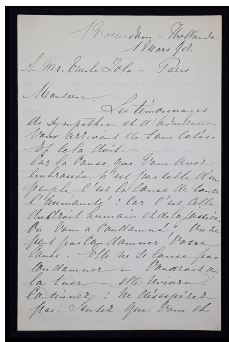 Hollande
Mars 98.
A Mr. Emile Zola – Paris
Monsieur,
Les témoignages
de sympathie et d'honneur
vous arrivent de tous côtés
et de
Car la Cause que vous avez
embrassée n'est pas celle d'un
peuple, c'est la Cause de toute
l'humanité : Car c'est celle
du droit humain et de la justice
On vous a condamné ! On ne
peut pas condamner votre
Cause. Elle ne se laisse pas
condamner –
la tuer – elle vivra
Continuez : ne désespérez
pas. Sentez que vous et